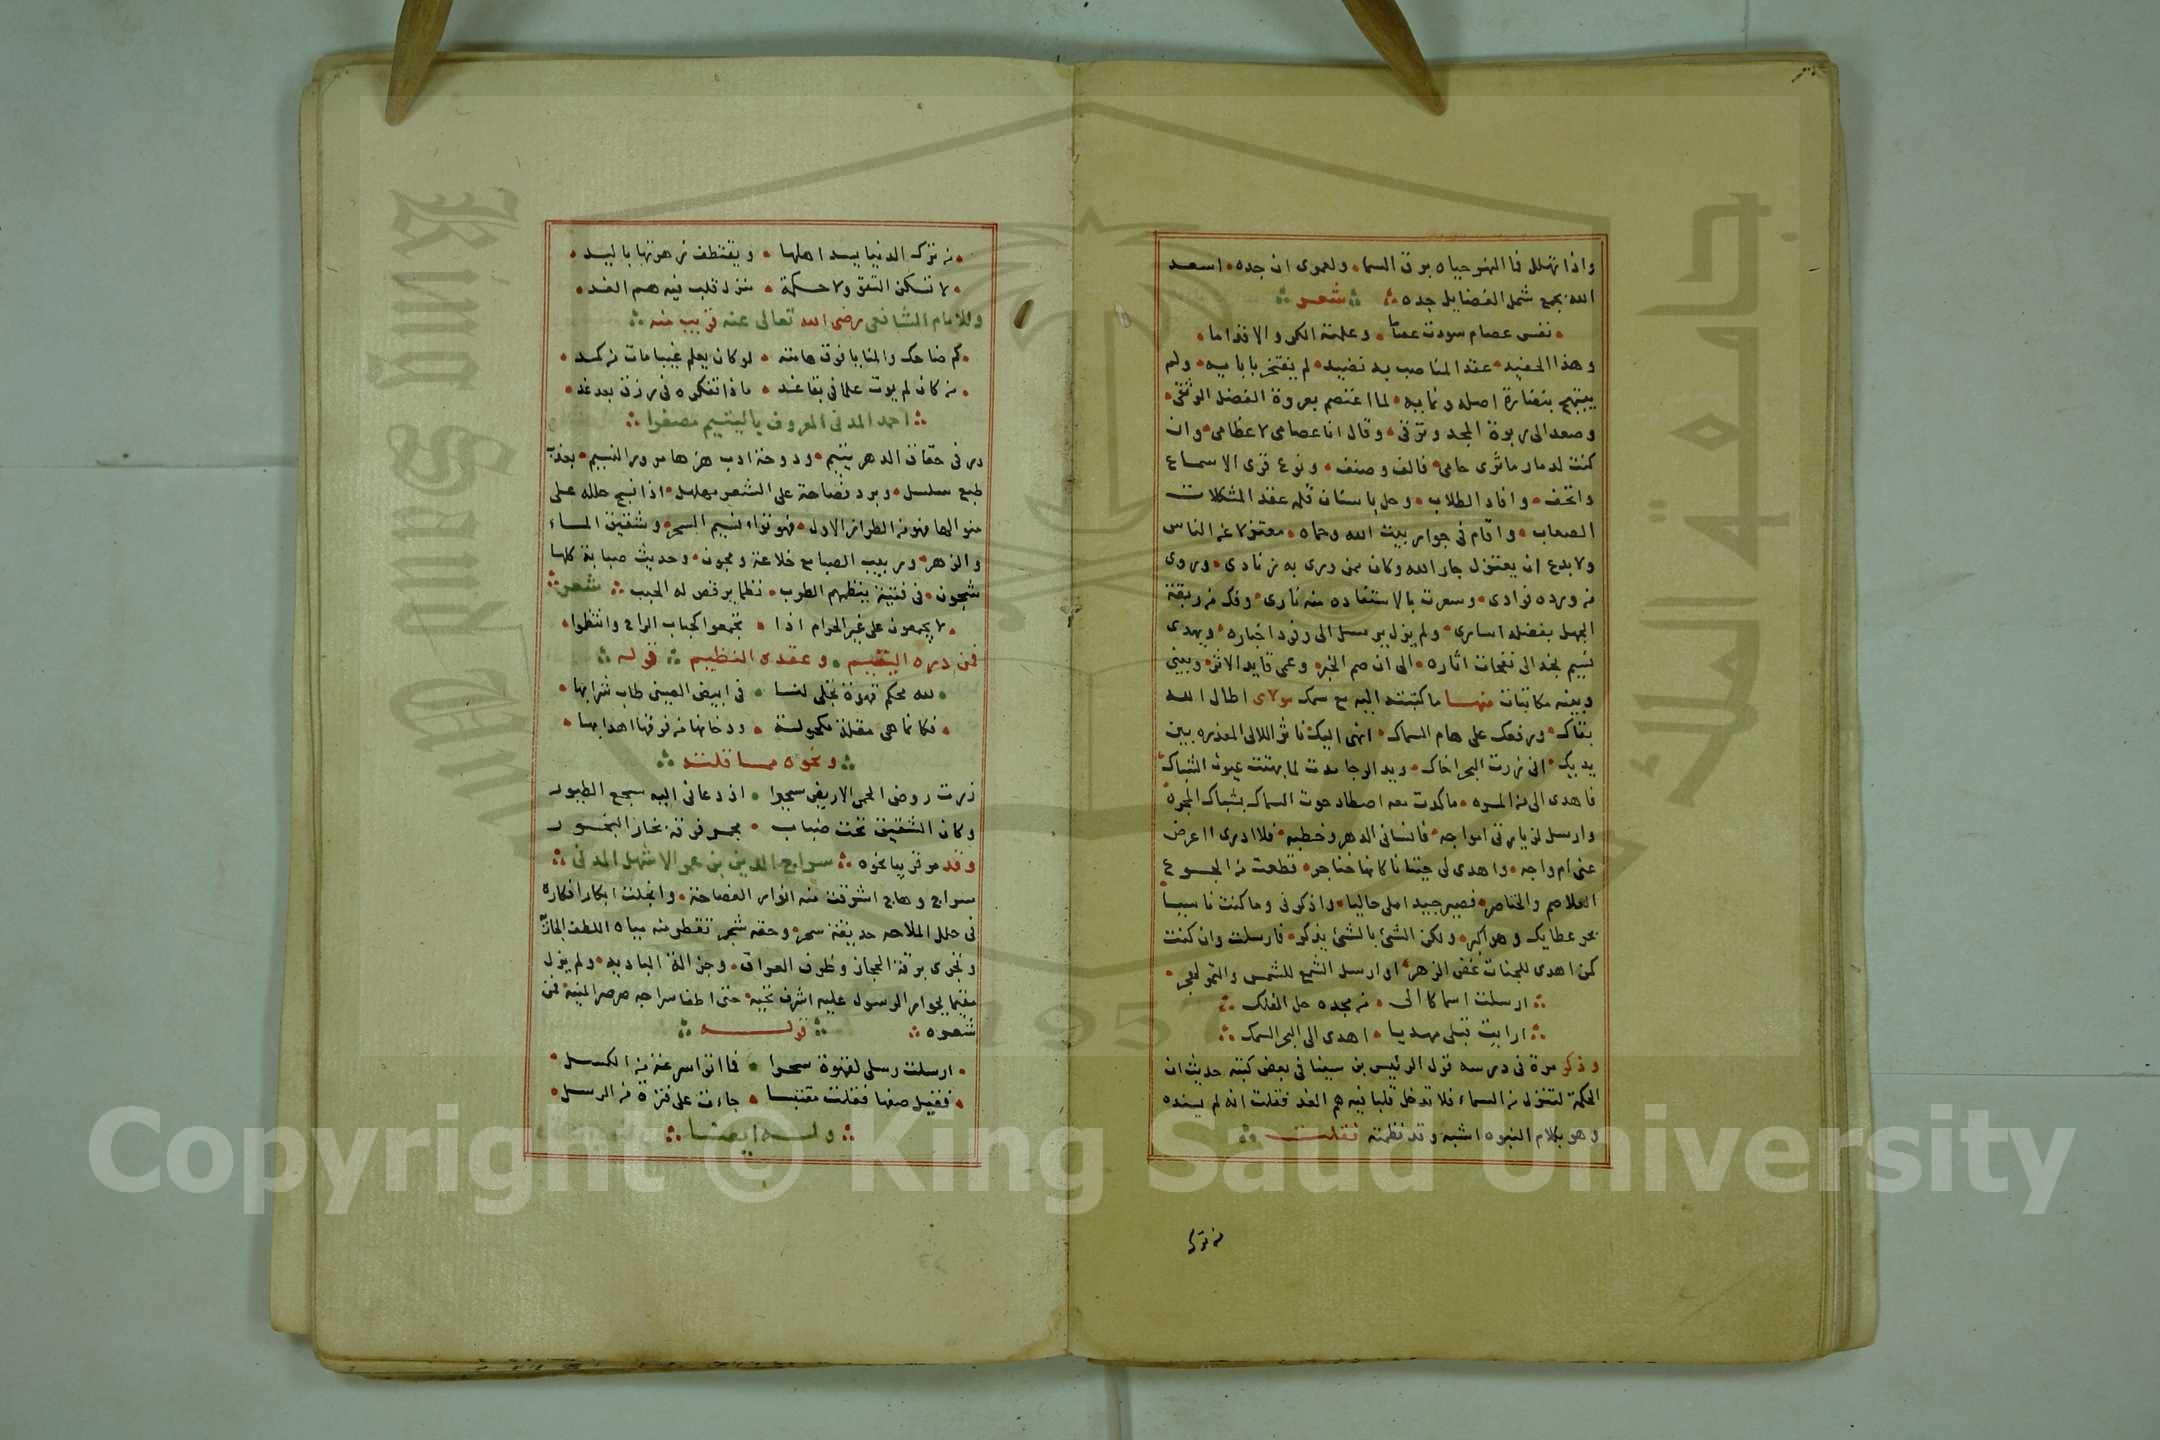 واذا تهلل فالهنو حياه برق السما • ولعمرى ان جده • اسعد
الله بجمع شمل الفضايل جده ∴ شعر ∴
• نفس عصام سودت عصاما • وعلمته الكر والاقداما •
وهذا الحفيد • عقد المناصب به نضيد • لم يفتخر بابايه • ولم
يبتهج بنضارة اصله ونمايه • لما اعتصم بعروة الفضل الوثقى •
وصعد الى ربوة المجد وترقى • وقال انا عصامى لا عظامى • وان
كنت لدمار ماثرى حامى • فالف وصنف • ونوع قرى الاسماع
واتحف • وافاد الطلاب • وحل باسنان قلمه عقد المشكلات
الصعاب • واقام فى جوار بيت الله وحماه • معتزلا عن الناس
ولا بدع ان يعتزل جار الله وكان ممن ورى به زنادى • وروى
من ورده فوادى • وسعرت بالاستفاده منه نارى • وفك من ربقة
الجهل بفضله اسارى • ولم يزل يرسل الى وفود اخباره • ويهدى
نسيم نجد الى نفحات اثاره • الى ان صم الخبر • وعمى قايد الاثر • وبينى
وبينه مكاتبات منها ما كتبته اليه مع سمك مولاى اطال الله
بقاك • ورفعك على هام السماك • انهى اليك ناثر اللالى المعذره بين
يديك • انى زرت البحر اخاك • ويد الرجا مدت لما بهتت عيون الشباك
فاهدى الى من المسره • ما كدت معه اصطاد حوت السماك بشباك المجره
وارسل لزيارتى امواجه • فانسانى الدهر وخطبه • فلا ادرى ااعرض
عنى ام واجه • واهدى لى حيتانا كانها خناجر • قطعت من الجوع
الغلاصم والحناجر • فصير جيد املى حاليا • واذكرنى وما كنت ناسيا
بحر عطايك وهو اكبر • ولكن الشئ بالشئ يذكر • فارسلت وان كنت
كمن اهدى للجنات غض الزهر • او ارسل الشمع للشمس والقمر لهجر •
∴ ارسلت اسماكا الى • من مجده حل الفلك ∴
∴ ارايت قبلى مهديا • اهدى الى البحر السمك ∴
وذكر مرة فى درسه قول الرئيس بن سينا فى بعض كتبه حديث ان
الحكمة لتنزل من السماء فلا تدخل قلبا فيه هم الغد فقلت انه لم يسنده
وهو بكلام النبوه اشبه وقد نظمته فقلت ∴
من ترك
• من ترك الدنيا يسد اهلها • ويقتطف زهرتها باليد •
• لا تسكن التقى ولا حكمة • منزل قلب فيه هم الغد •
وللامام الشافعى رضى الله تعالى عنه قريب منه ∴
• كم ضاحك والمنايا فوق هامته • لو كان يعلم غيبا مات من كمد •
• من كان لم يوت علما فى بقا غد • ماذا تفكره فى رزق بعد غد •
∴ احمد المدنى المعروف باليتيم مصغرا ∴
در فى حقاق الدهر يتيم • ودوحة ادب هزها مرور النسيم • بعذب
طبع سلسل • وبرد فصاحة على الشعر مهلهل • اذا نسج حلله على
منوالها فهو من الطراز الاول • فهو نواء نسيم السحر • وشقيق الماء
والزهر • وربيب الصبا مع خلاعة ومجون • وحديث صبابة كلها
شجون • فى فتية ينظمهم الطرب • نظما يرقص له الحبب ∴ شعر ∴
• لا يجمعون على غير الحرام اذا • تجمعوا كحباب الراح وانتظموا •
فمن دره اليتيم • وعقده النظيم ∴ قوله ∴
• لله محكم قهوة تجلى لنا • فى ابيض الصينى طاب شرابها •
• فكانما هى مقلة مكحولة • ودخانها من فوقها اهدابها •
∴ ونحوه مما قلته ∴
زرت روض الحمى الاريض سحرا • اذ دعانى اليه سجع الطيور
وكان الشقيق تحت ضباب • مجمر فوقه بخار البخور
وقد مر قريبا نحوه ∴ سراج الدين بن عمر الاشهل المدنى ∴
سراج وهاج اشرقت منه انوار الفصاحة • وانجلت ابكار افكاره
فى حلل الملاحه حديقة سحر • وحقه شجر تقطر منه مياه اللطف الجارى
وتجرى برقة الحجاز وظرف العراق • وجزالة الباديه • ولم يزل
مقيما بجوار الرسول عليه اشرف تحيه • حتى اطفا سراجه صرصر المنيه • فمن
شعره ∴ قوله ∴
• ارسلت رسلى لقهوة سحرا • فما انوا سرعة من الكسل •
• فقيل صفها فقلت مقتبسا • جاءت على فترة من الرسل •
∴ وله ايضا ∴